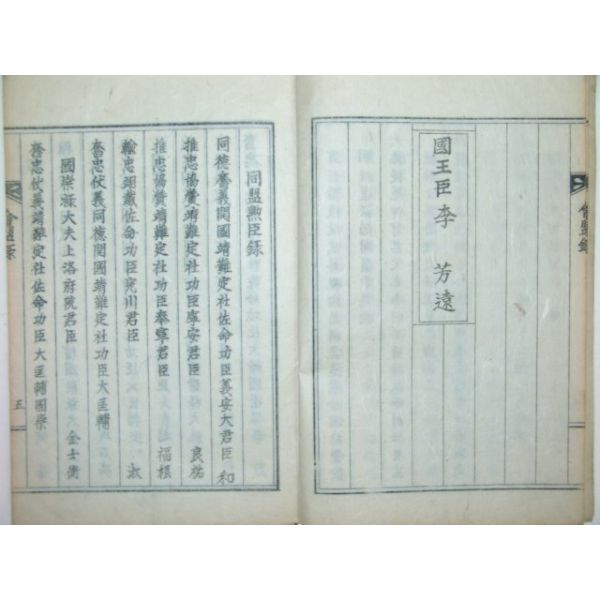 國王臣李 芳遠
會盟錄
同盟勲臣錄
同德奮義開國靖難定社佐命功臣義安大君臣 和
推忠協贊靖難定社功臣寧安君臣 良祐
推忠協贊靖難定社功臣奉寧君臣 福根
翰忠翊戴佐命功臣完川君臣 淑
奮忠伏義同德開國靖難定社功臣大匡輔
國崇祿大夫上洛府院君臣 金士衡
奮忠伏義靖難定社佐命功臣大匡輔國崇
會盟錄
五